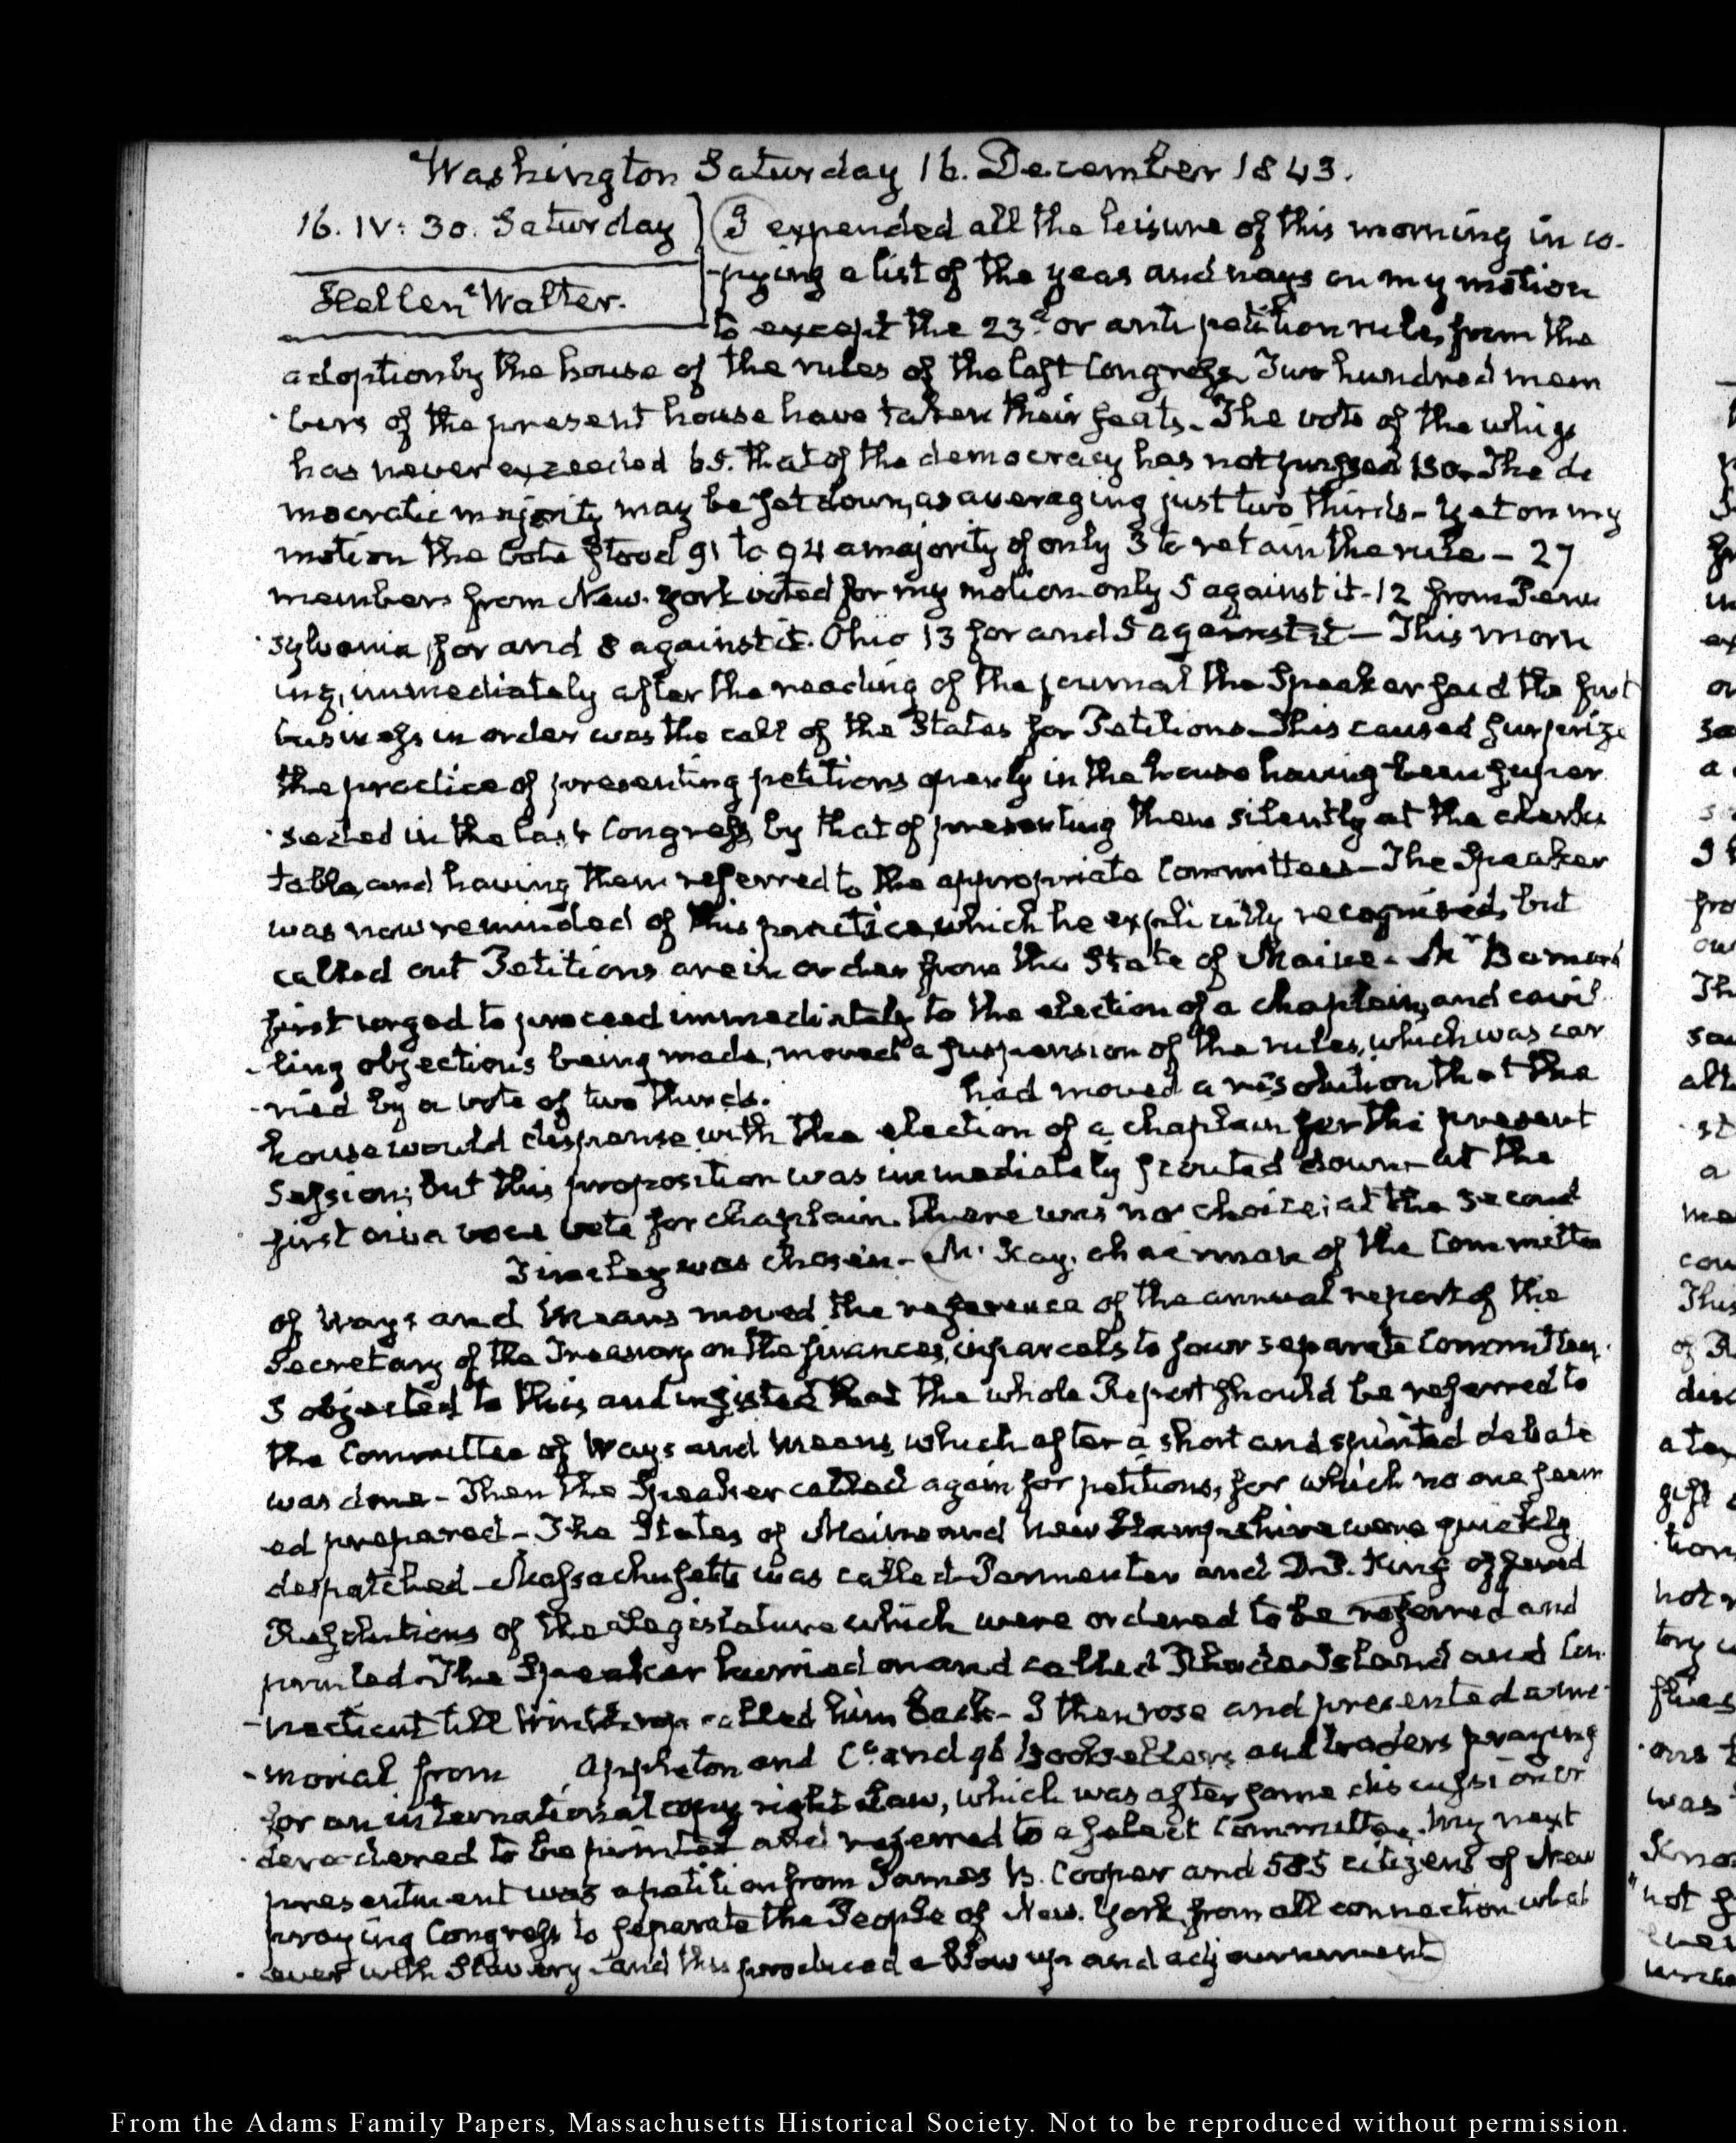 Washington Saturday 16. December 1843.
16. IV: 30. Saturday
Hellen Walter.
I expended all the leisure of this morning in co-
-pying a list of the yeas and nays on my motion
to except the 23.d or anti petition rule, from the
adoption by the house of the rules of the last Congress. Two hundred mem
-bers of the present house have taken their seats. The vote of the whigs
has never exceeded 65. that of the democracy has not passed 130. The de
mocratic majority may be set down, as averaging just two thirds – Yet on my
motion the vote stood 91 to 94 a majority of only 3 to retain the rule – 27
members from New-York voted for my motion only 5 against it – 12 from Penn
-sylvania for and 8 against it. Ohio 13 for and 5 against it – This morn
ing, immediately after the reading of the journal the Speaker said the first
business in order was the call of the States for Petitions – This caused surprize
the practice of presenting petitions openly in the house having been super
-seded in the last Congress, by that of presenting them silently at the clerks
table, and having them referred to the appropriate Committees – The Speaker
was now reminded of this practice, which he explicitly recognised, but
called out Petitions are in order from the State of Maine – Mr Barnard
first urged to proceed immediately to the election of a chaplain, and cavil
-ling objections being made, moved a suspension of the rules, which was car
-ried by a vote of two thirds. had moved a resolution that the
house would dispense with the election of a chaplain for the present
Session; but this proposition was immediately scouted down – at the
first viva voce vote for chaplain. There was no choice; at the second
Tinsley was chosen – Mc.Kay, chairman of the Committee
of Ways and Means moved the reference of the annual report of the
Secretary of the Treasury on the finances, in parcels to four separate Committees.
I objected to this and insisted that the whole Report should be referred to
the Committee of Ways and Means, which after a short and spirited debate
was done – Then the Speaker called again for petitions, for which no one seem
ed prepared – The States of Maine and New Hampshire were quickly
despatched – Massachusetts was called – Parmenter and D. P. King offered
Resolutions of the Legislature which were ordered to be referred and
printed – The Speaker hurried on and called Rhode Island and Con
-necticut till Winthrop called him back – I then rose and presented a me
-morial from Appleton and Co. and 96 booksellers and traders praying
for an international copy right Law, which was after some discussion or
dered to be printed and referred to a select Committee. My next
presentment was a petition from James B. Cooper and 585 citizens of New
praying Congress to separate the People of New-York from all connection what
-ever with Slavery – and this produced a blow up and adjournment
From the Adams Family Papers, Massachusetts Historical Society. Not to be reproduced without permission.